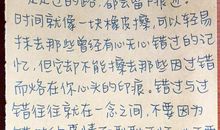 走过的路，都会留下
时间就像一块橡皮擦，可以轻易
抹去那些曾经有心无心错过的记
忆，但它却不能擦去那些因过错
而烙在你心头的印痕。错过与过
错往往就在一念之间，不要因为